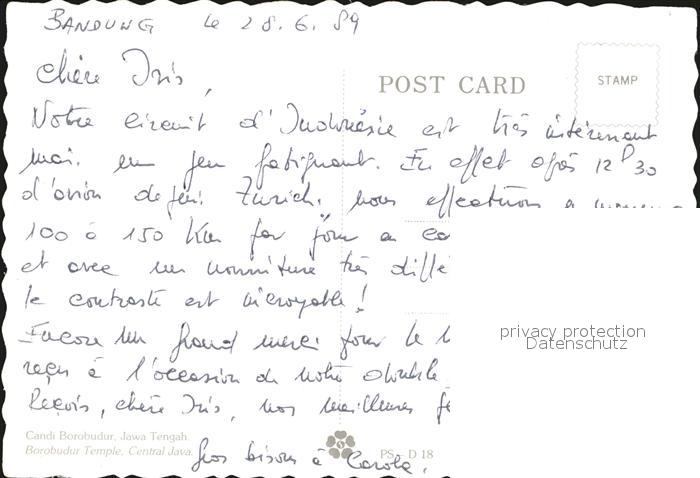 BANDUNG le 28.6.89
Chère Iris,
POST CARD
STAMP
Notre circuit d'Indonésie est très intéressant
mais un peu fatiguant. En effet après 12h30
d'avion depuis Zurich, nous effectuons
100 à 150 Km par jour en
et avec un nourriture très diffé
le contraste est incroyable!
Encore un grand merci pour le
reçu à l'occasion de notre double
Reçois, chère Iris, nos meilleures
Gros bisous à Carole.
Candi Borobudur, Jawa Tengah.
Borobudur Temple, Central Java.
PS - D 18
privacy protection
Datenschutz